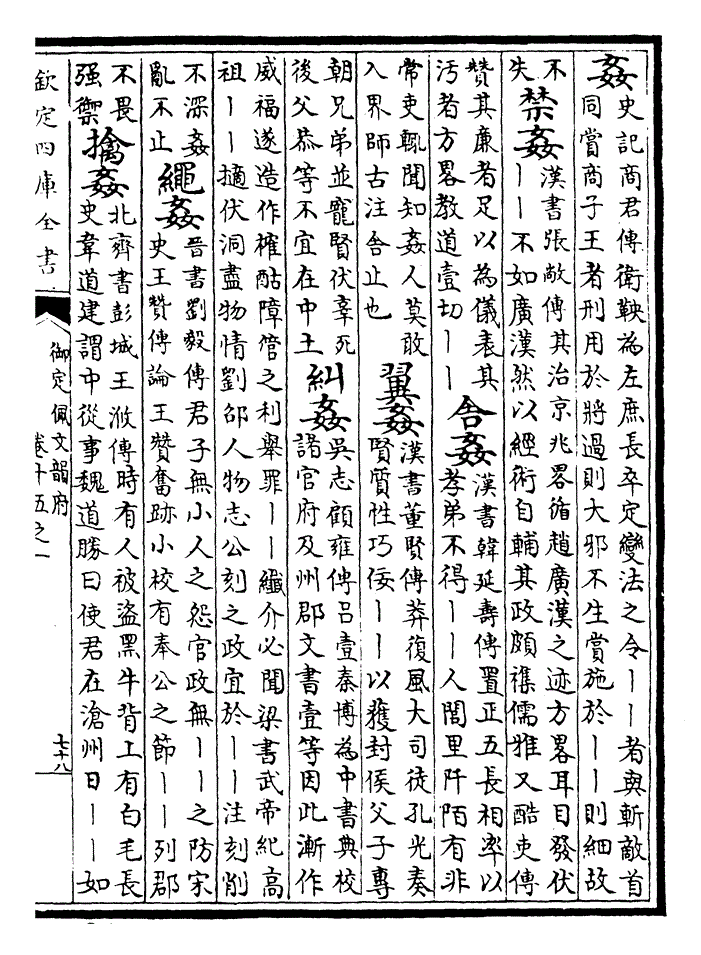 姦
史記商君傳衛鞅為左庶長卒定變法之令丨丨者與斬敵首
同賞商子王者刑用於將過則大邪不生賞施於丨丨則細故
不
失
禁姦
漢書張敞傳其治京兆畧循趙廣漢之迹方畧耳目發伏
丨丨不如廣漢然以經術自輔其政頗襍儒雅又酷吏傳
贊其廉者足以為儀表其
汚者方畧教道壹切丨丨
舍姦
漢書韓延壽傳置正五長相率以
孝弟不得丨丨人閭里阡陌有非
常吏輒聞知姦人莫敢
入界師古注舍止也
翼姦
漢書董賢傳莽復風大司徒孔光奏
賢質性巧佞丨丨以獲封侯父子專
朝兄弟並寵賢伏辜死
後父恭等不宜在中土
糾姦
吳志顧雍傳呂壹秦博為中書典校
諸官府及州郡文書壹等因此漸作
威福遂造作榷酤障管之利舉罪丨丨纖介必聞梁書武帝紀高
祖丨丨擿伏洞盡物情劉邵人物志公刻之政宜於丨丨注刻削
不深姦
亂不止
繩姦
晉書劉毅傳君子無小人之怨官政無丨丨之防宋
史王贊傳論王贊奮跡小校有奉公之節丨丨列郡
不畏
强禦
擒姦
北齊書彭城王浟傳時有人被盜黑牛背上有白毛長
史韋道建謂中從事魏道勝曰使君在滄州日丨丨如
欽定四庫全書
御定佩文韻府
卷十五之一
七十八